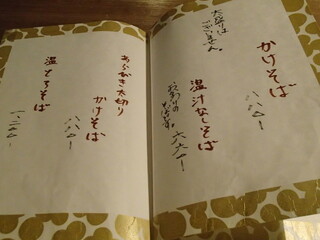 大盛りは
ございません。
かけそば
八八〇ー
温汁なしそば
六六〇ー
あらびき太切り
かけそば
八八〇ー
温とろそば
一、二八〇ー